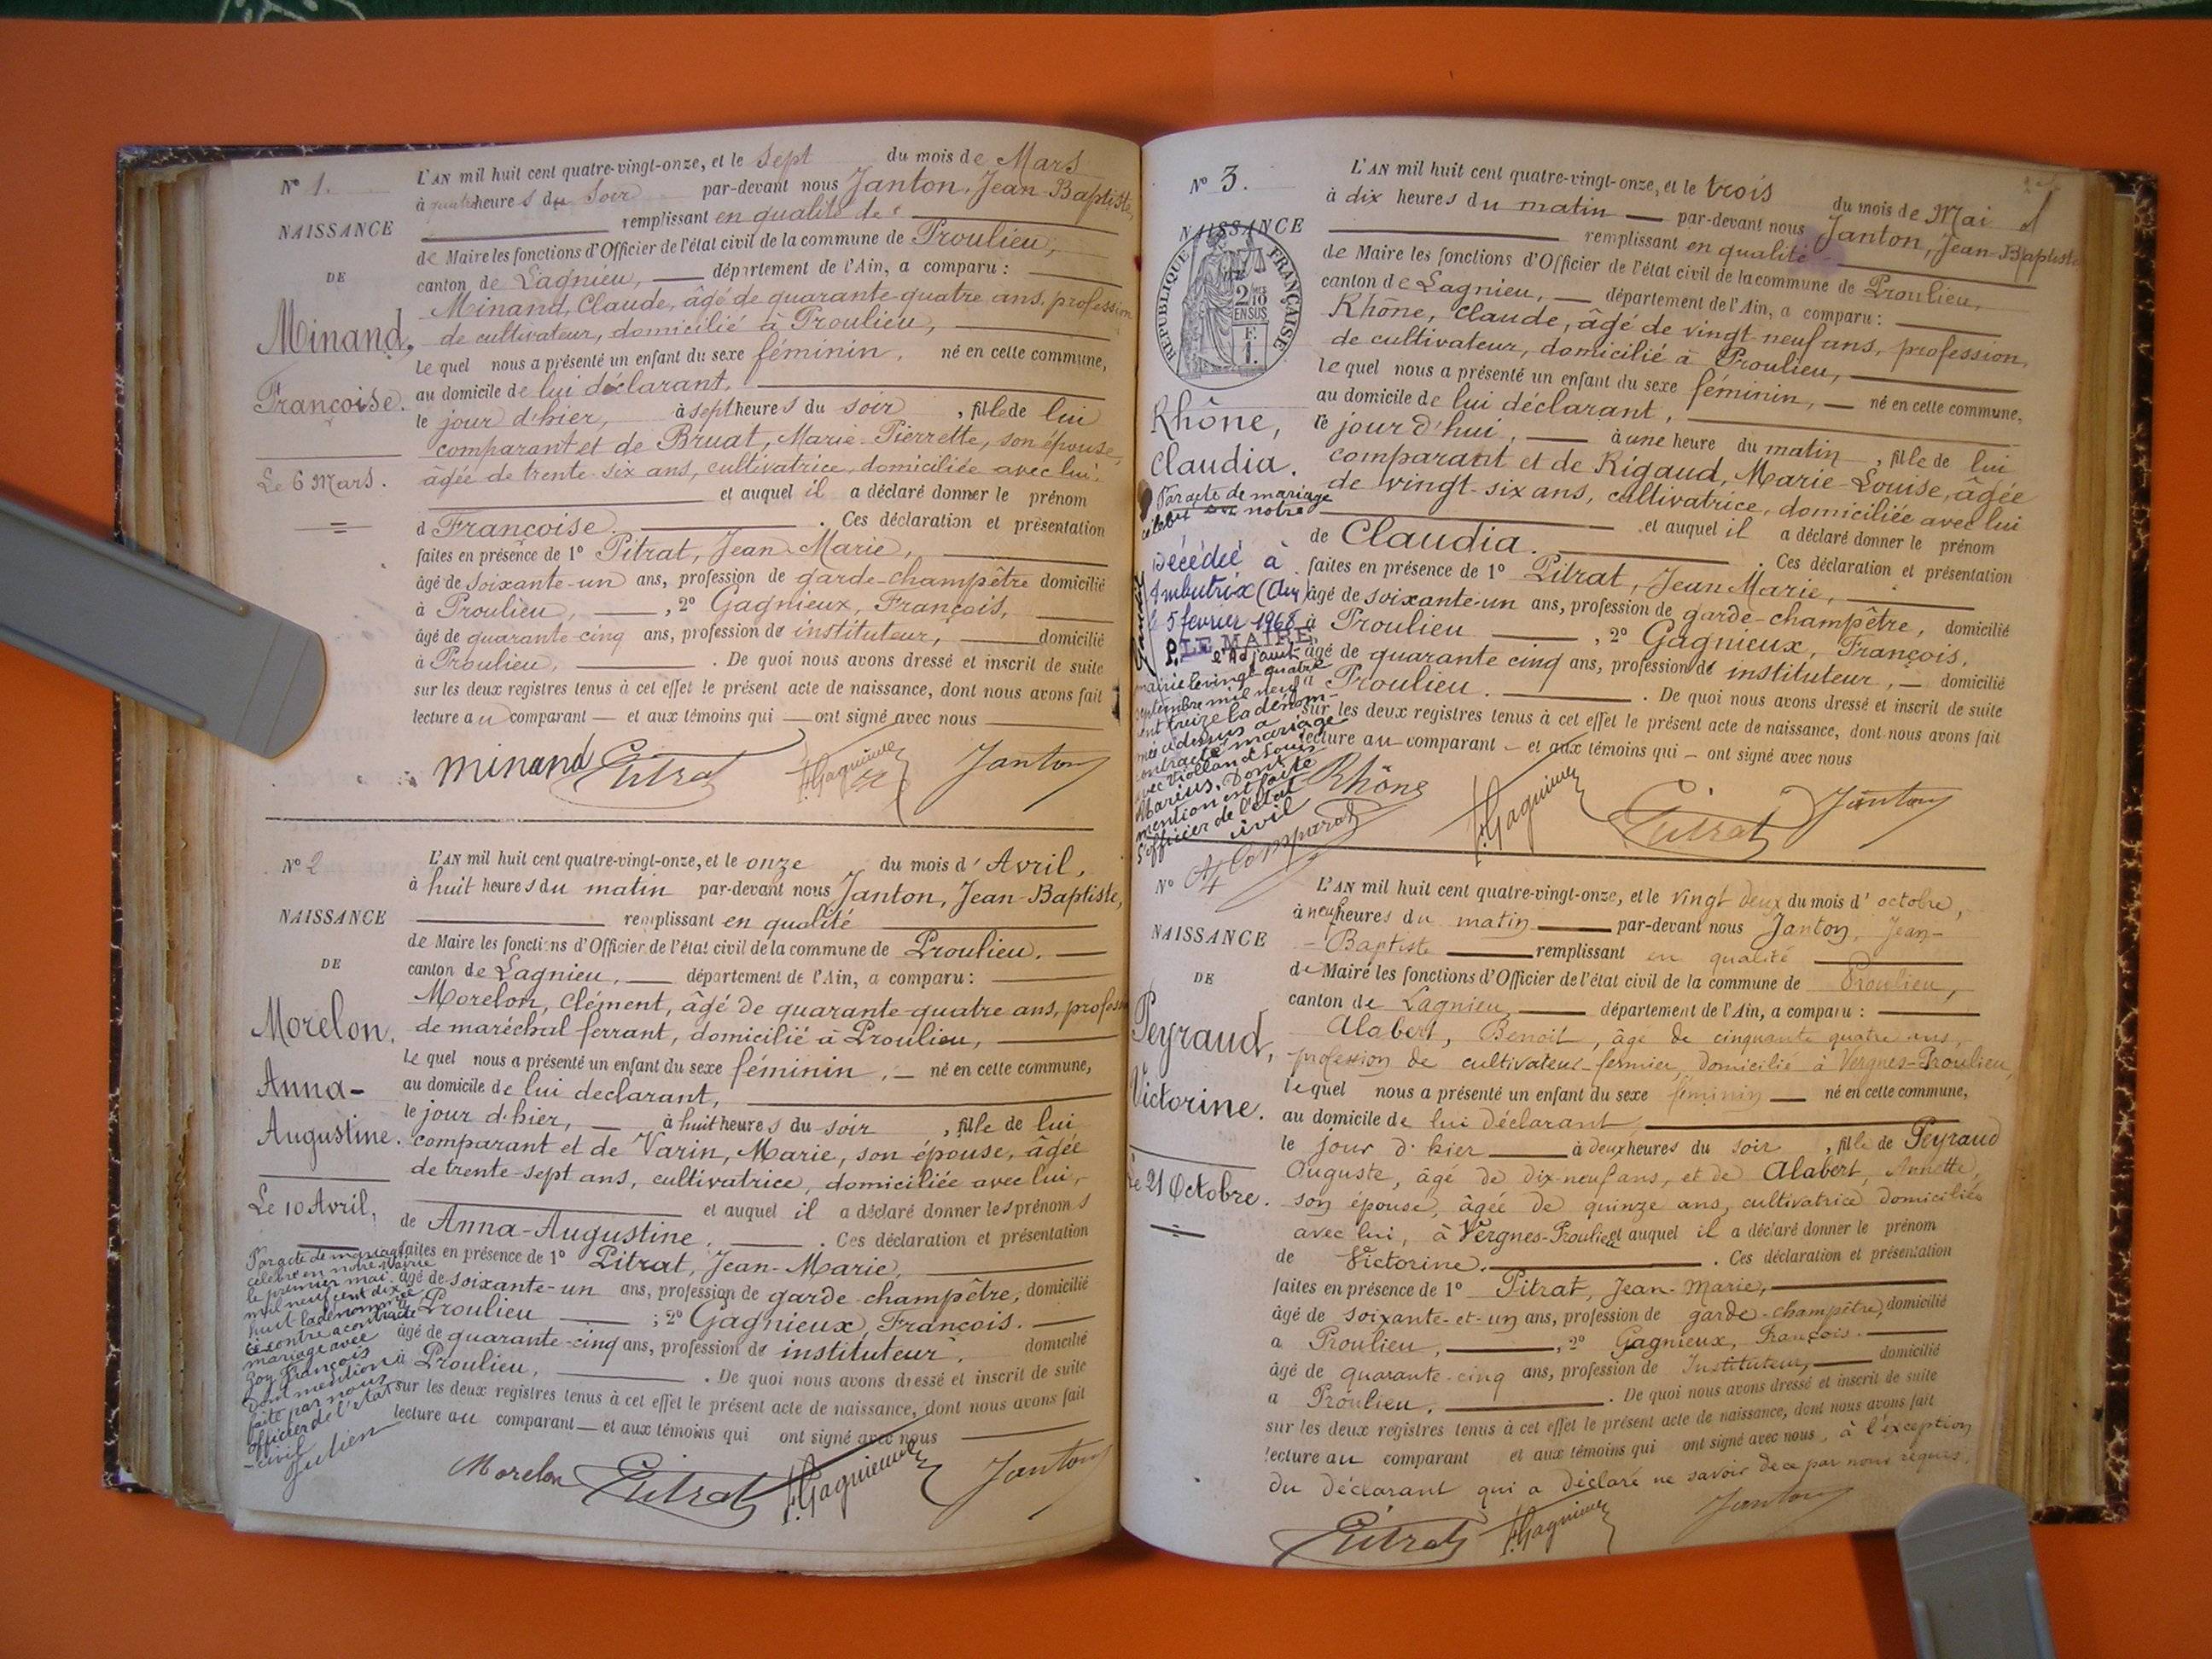 N° 1.
NAISSANCE
DE
Minand,
Françoise.
Le 6 Mars.
L'AN mil huit cent quatre-vingt-onze, et le sept du mois de Mars
à quatre heures du soir par-devant nous Janton, Jean-Baptiste,
remplissant en qualité de
de Maire les fonctions d'Officier de l'état civil de la commune de Proulieu,
canton de Lagnieu, département de l'Ain, a comparu :
Minand, Claude, âgé de quarante-quatre ans, profession
de cultivateur, domicilié à Proulieu,
lequel nous a présenté un enfant du sexe féminin, né en cette commune,
au domicile de lui déclarant,
le jour d'hier, à sept heures du soir, fille de lui
comparant et de Bruat, Marie-Pierrette, son épouse,
âgée de trente-six ans, cultivatrice, domiciliée avec lui,
et auquel il a déclaré donner le prénom
d Françoise. Ces déclaration et présentation
faites en présence de 1° Pitrat, Jean-Marie,
âgé de soixante-un ans, profession de garde-champêtre domicilié
à Proulieu, , 2° Gagnieux, François,
âgé de quarante-cinq ans, profession de instituteur, domicilié
à Proulieu, . De quoi nous avons dressé et inscrit de suite
sur les deux registres tenus à cet effet le présent acte de naissance, dont nous avons fait
lecture au comparant — et aux témoins qui — ont signé avec nous
Minand Pitrat F. Gagnieux Janton
N° 2
NAISSANCE
DE
Morelon,
Anna-
Augustine.
Le 10 Avril,
L'AN mil huit cent quatre-vingt-onze, et le onze du mois d'Avril,
à huit heures du matin par-devant nous Janton, Jean-Baptiste,
remplissant en qualité
de Maire les fonctions d'Officier de l'état civil de la commune de Proulieu,
canton de Lagnieu, — département de l'Ain, a comparu :
Morelon, Clément, âgé de quarante-quatre ans, profess
de maréchal ferrant, domicilié à Proulieu,
lequel nous a présenté un enfant du sexe féminin, — né en cette commune,
au domicile de lui declarant,
le jour d'hier, — à huit heures du soir, fille de lui
comparant et de Varin, Marie, son épouse, âgée
de trente-sept ans, cultivatrice, domiciliée avec lui,
et auquel il a déclaré donner les prénoms
de Anna-Augustine. Ces déclaration et présentation
faites en présence de 1° Pitrat, Jean-Marie,
âgé de soixante-un ans, profession de garde-champêtre, domicilié
à Proulieu ; 2° Gagnieux, François.
âgé de quarante-cinq ans, profession de instituteur, domicilié
à Proulieu, . De quoi nous avons dressé et inscrit de suite
sur les deux registres tenus à cet effet le présent acte de naissance, dont nous avons fait
lecture au comparant — et aux témoins qui ont signé avec nous
Par acte de mariage
célébré en notre mairie
le premier mai
mil neuf cent dix
huit la dénommée
ci-contre a contracté
mariage avec
Goy François
Dont mention
faite par nous
officier de l'état
-civil
Julien
Morelon Pitrat F. Gagnieux Janton
N° 3.
NAISSANCE
RÉPUBLIQUE FRANÇAISE
2/10
EN SUS
F.
1.
Rhône,
Claudia.
Par acte de mariage
célébré en notre
mairie le vingt quatre
septembre mil neuf
cent treize la dénom-
mée ci dessus a
contracté mariage
avec Violland Louis
Marius, Dont
mention est faite
L'officier de l'état
civil
Décédée à
Ambutrix (Ain)
le 5 février 1968
P. LE MAIRE
l'Adjoint
L'AN mil huit cent quatre-vingt-onze, et le trois du mois de Mai
à dix heures du matin — par-devant nous Janton, Jean-Baptiste
remplissant en qualité
de Maire les fonctions d'Officier de l'état civil de la commune de Proulieu,
canton de Lagnieu, — département de l'Ain, a comparu :
Rhône, Claude, âgé de vingt-neuf ans, profession
de cultivateur, domicilié à Proulieu,
lequel nous a présenté un enfant du sexe féminin, — né en cette commune,
au domicile de lui déclarant,
le jour d'hui, — à une heure du matin, fille de lui
comparant et de Rigaud, Marie-Louise, âgée
de vingt-six ans, cultivatrice, domiciliée avec lui
et auquel il a déclaré donner le prénom
de Claudia. Ces déclaration et présentation
faites en présence de 1° Pitrat, Jean Marie,
âgé de soixante-un ans, profession de garde-champêtre, domicilié
à Proulieu , 2° Gagnieux, François,
âgé de quarante cinq ans, profession de instituteur, — domicilié
à Proulieu. . De quoi nous avons dressé et inscrit de suite
sur les deux registres tenus à cet effet le présent acte de naissance, dont nous avons fait
lecture au comparant — et aux témoins qui — ont signé avec nous
Rhône F. Gagnieux Pitrat Janton
N° 4
NAISSANCE
DE
Peyraud,
Victorine.
Le 21 Octobre.
L'AN mil huit cent quatre-vingt-onze, et le vingt deux du mois d'octobre,
à neuf heures du matin par-devant nous Janton, Jean-
-Baptiste remplissant en qualité
de Maire les fonctions d'Officier de l'état civil de la commune de Proulieu,
canton de Lagnieu département de l'Ain, a comparu :
Alabert, Benoit, âgé de cinquante quatre ans,
profession de cultivateur-fermier, domicilié à Vergnes-Proulieu,
lequel nous a présenté un enfant du sexe féminin — né en cette commune,
au domicile de lui déclarant,
le jour d'hier à deux heures du soir, fille de Peyraud
Auguste, âgé de dix-neuf ans, et de Alabert, Annette,
son épouse, âgée de quinze ans, cultivatrice domiciliée
avec lui, à Vergnes-Proulieu et auquel il a déclaré donner le prénom
de Victorine. Ces déclaration et présentation
faites en présence de 1° Pitrat, Jean-Marie,
âgé de soixante-et-un ans, profession de garde-champêtre, domicilié
a Proulieu, , 2° Gagnieux, François.
âgé de quarante-cinq ans, profession de Instituteur, domicilié
a Proulieu, . De quoi nous avons dressé et inscrit de suite
sur les deux registres tenus à cet effet le présent acte de naissance, dont nous avons fait
lecture au comparant et aux témoins qui ont signé avec nous, à l'exception
du déclarant qui a déclaré ne savoir de ce par nous requis.
Pitrat F. Gagnieux Janton